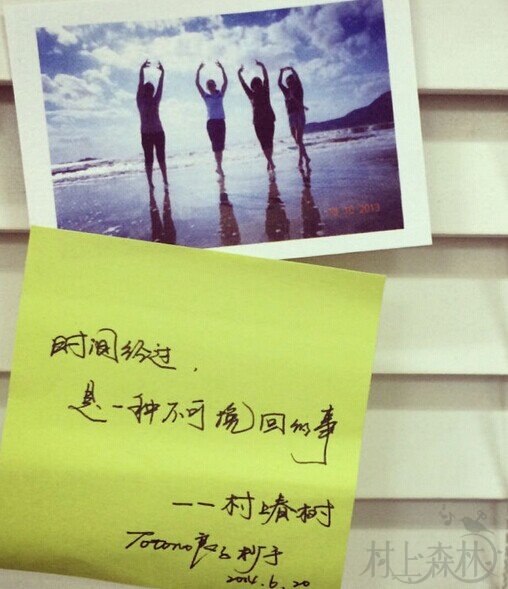 时间经过，
是一种不可挽回的事
——村上春树
2014.6.20
村上森林